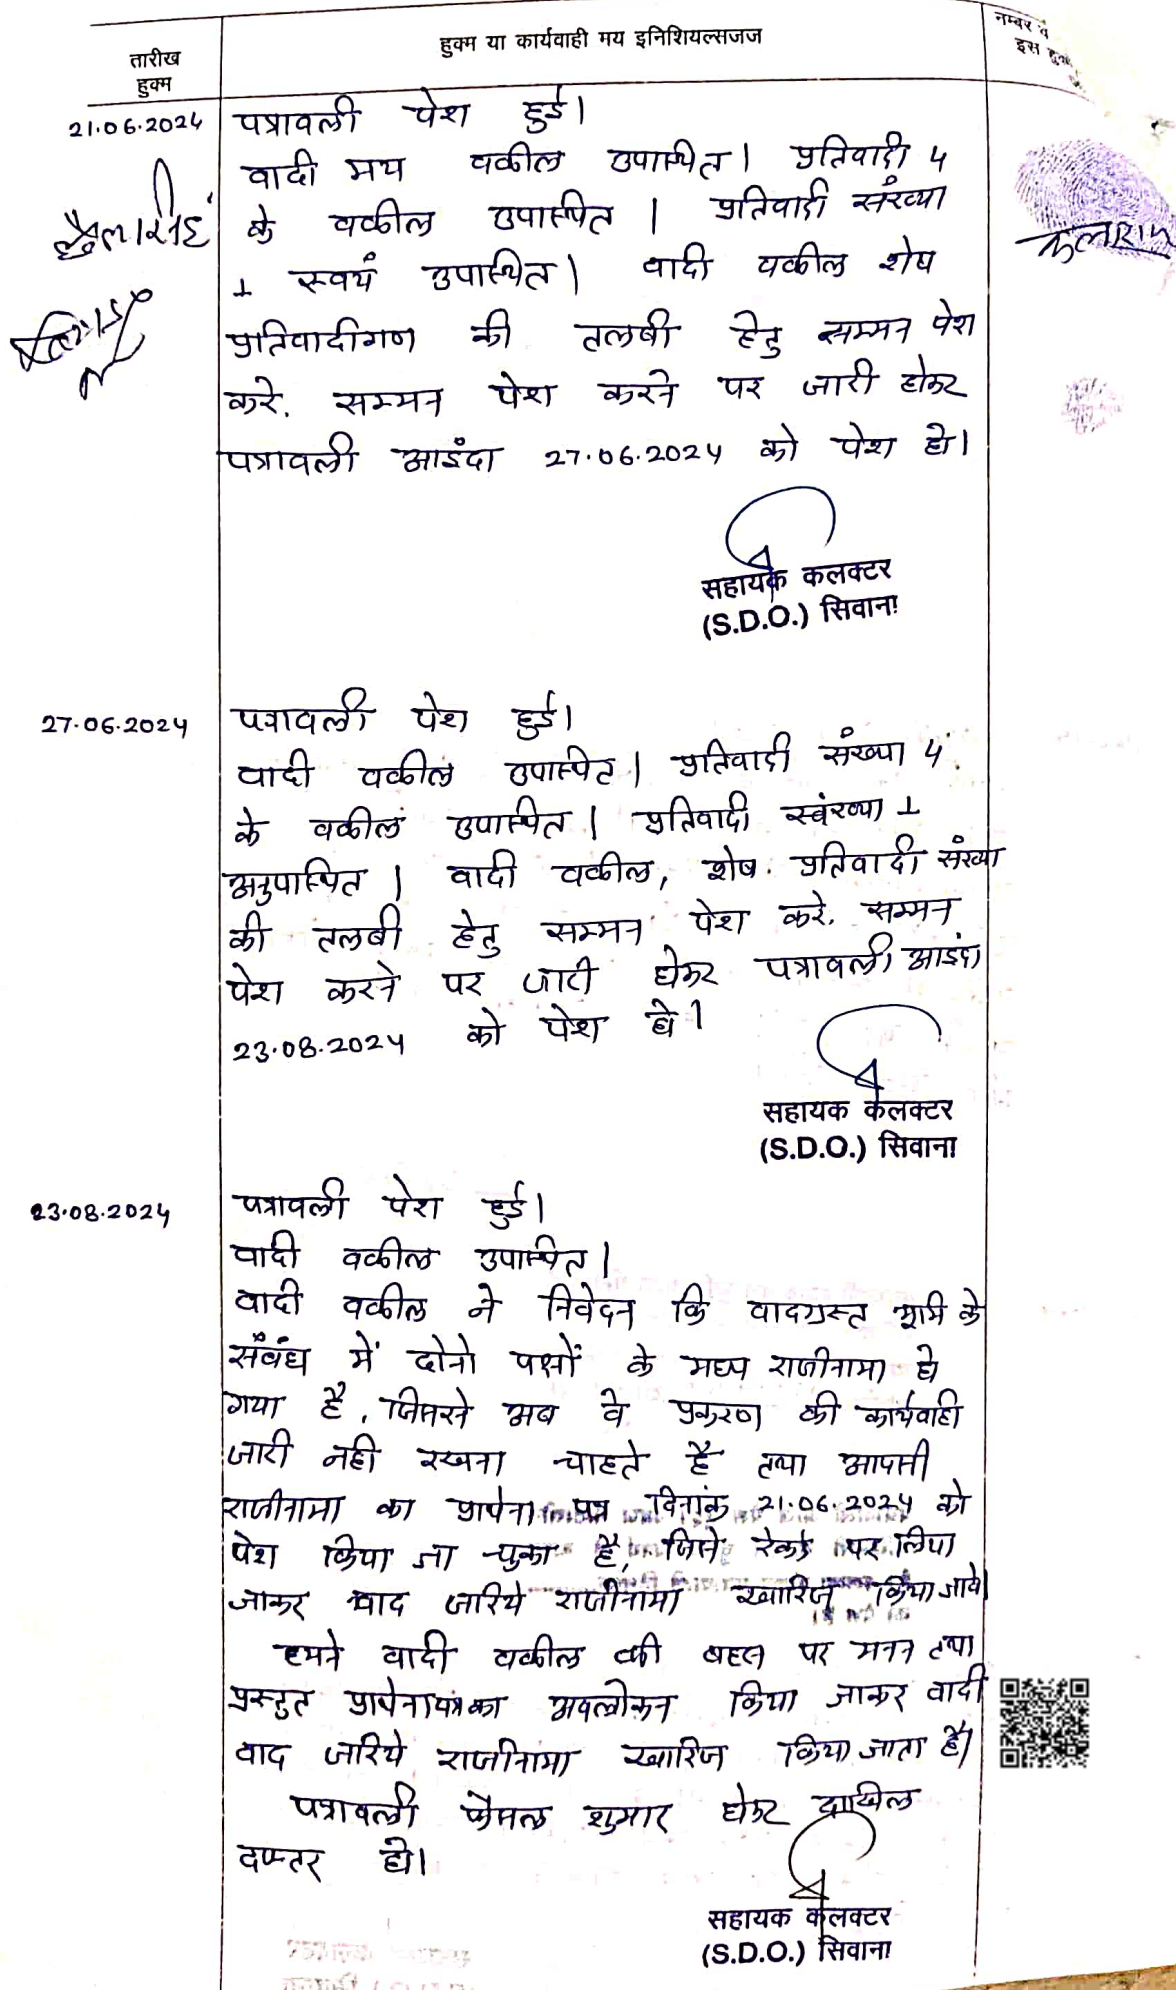 तारीख
हुक्म
हुक्म या कार्यवाही मय इनिशियल्सजज
नम्बर व
इस हुक्म
21.06.2024
पत्रावली पेश हुई।
वादी मय वकील उपास्थित। प्रतिवादी 4
के वकील उपास्थित। प्रतिवादी संख्या
1 स्वयं उपास्थित। वादी वकील शेष
प्रतिवादीगण की तलबी हेतु सम्मन पेश
करे. सम्मन पेश करने पर जारी होकर
पत्रावली आइंदा 27.06.2024 को पेश हो।
सहायक कलक्टर
(S.D.O.) सिवाना
27.06.2024
पत्रावली पेश हुई।
वादी वकील उपास्थित। प्रतिवादी संख्या 4
के वकील उपास्थित। प्रतिवादी स्वंख्या 1
अनुपास्थित। वादी वकील, शेष प्रतिवादी संख्या
की तलबी हेतु सम्मन पेश करे. सम्मन
पेश करने पर जारी होकर पत्रावली आइंदा
23.08.2024 को पेश हो।
सहायक कलक्टर
(S.D.O.) सिवाना
23.08.2024
पत्रावली पेश हुई।
वादी वकील उपास्थित।
वादी वकील ने निवेदन कि वादग्रस्त भूमि के
संबंध में दोनो पक्षों के मध्य राजीनामा हो
गया है, जिससे अब वे प्रकरण की कार्यवाही
जारी नही रखना चाहते है तथा आपसी
राजीनामा का प्रार्थना पत्र दिनांक 21.06.2024 को
पेश किया जा चुका है, जिसे रेकर्ड पर लिया
जाकर वाद जरिये राजीनामा खारिज किया जावे।
हमने वादी वकील की बहस पर मनन तथा
प्रस्तुत प्रार्थनापत्र का अवलोकन किया जाकर वादी
वाद जरिये राजीनामा खारिज किया जाता है।
पत्रावली फैसल शुमार होकर दाखिल
दफ्तर हो।
सहायक कलक्टर
(S.D.O.) सिवाना